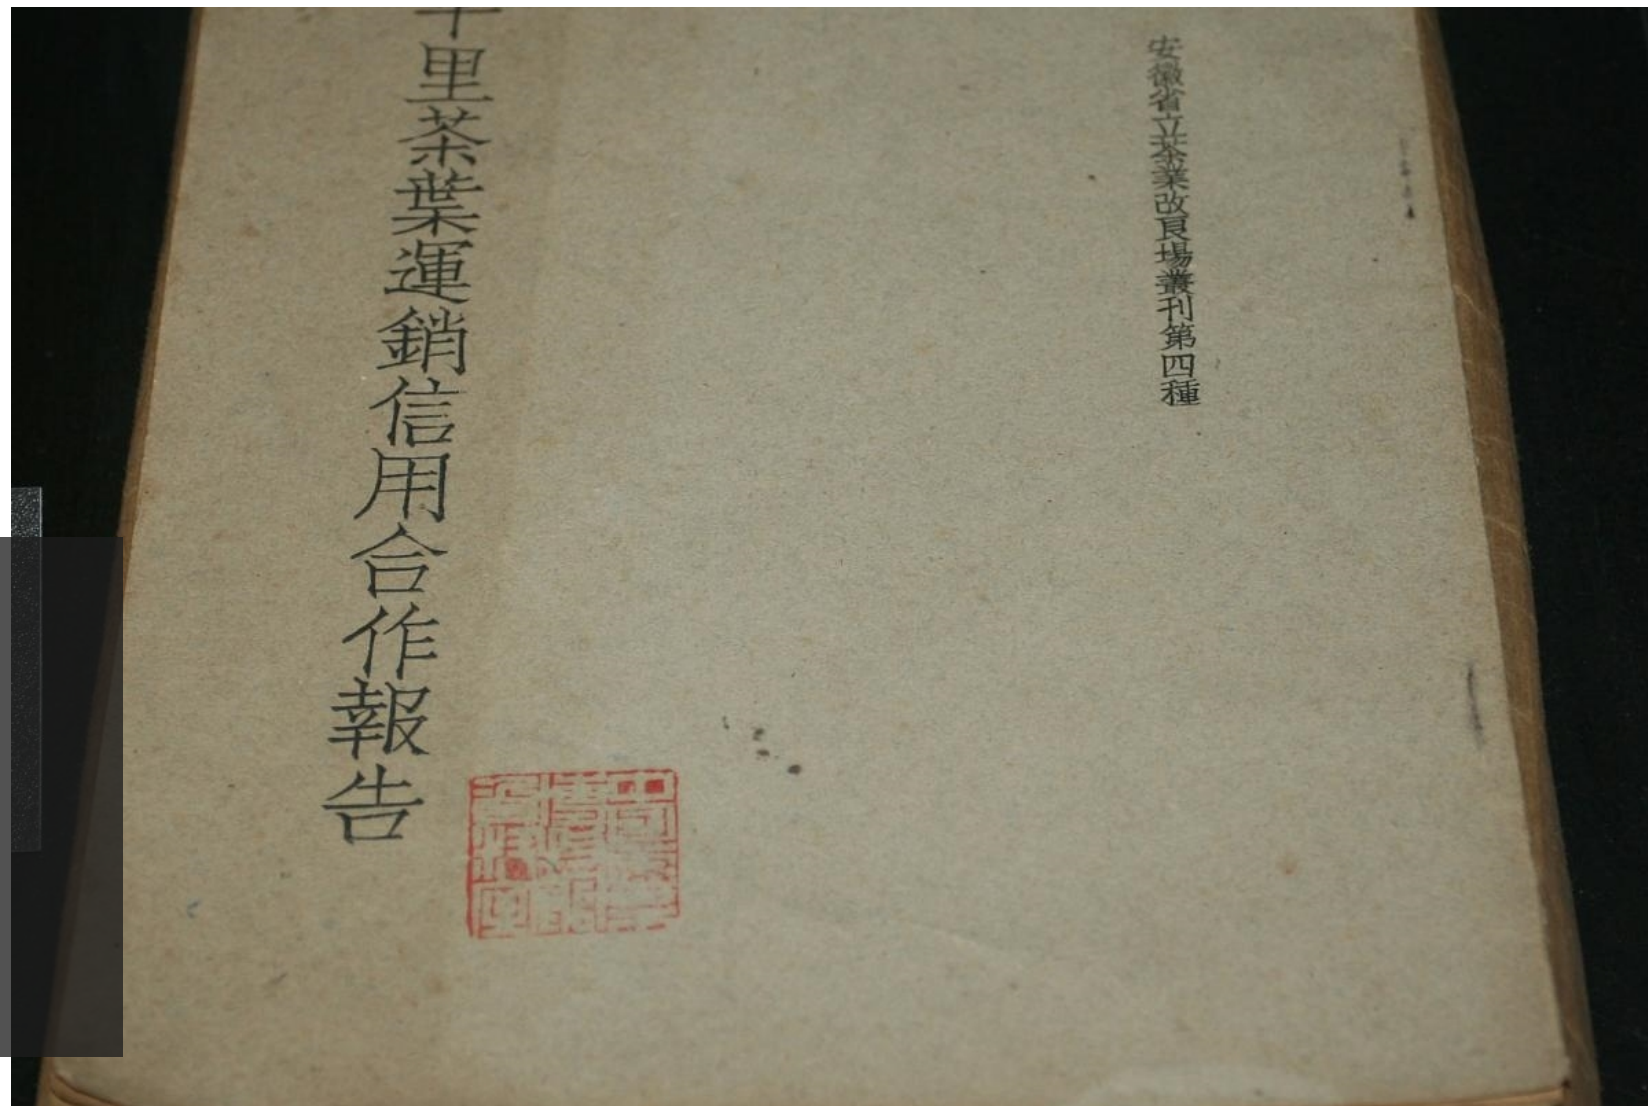 安徽省立茶業改良場叢刊第四種
里茶葉運銷信用合作報告